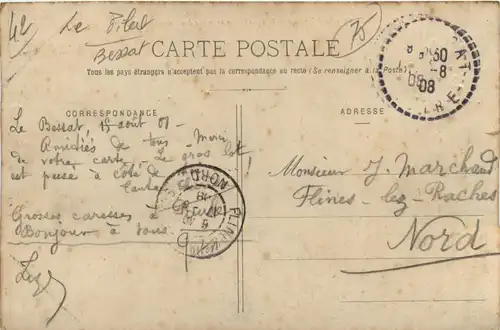 42
Le Pilat
75
Bessat
CARTE POSTALE
Tous les pays étrangers n'acceptent pas la correspondance au recto (Se renseigner à la Poste)
CORRESPONDANCE
ADRESSE
Le Bessat, 15 août 08
Amitiés de tous. Merci
de votre carte. Le gros lot
est passé à côté de
Grosses caresses à
Bonjour à tous
Monsieur J. Marchand
Flines-lez-Raches
Nord
NORD
FLIN
8
08